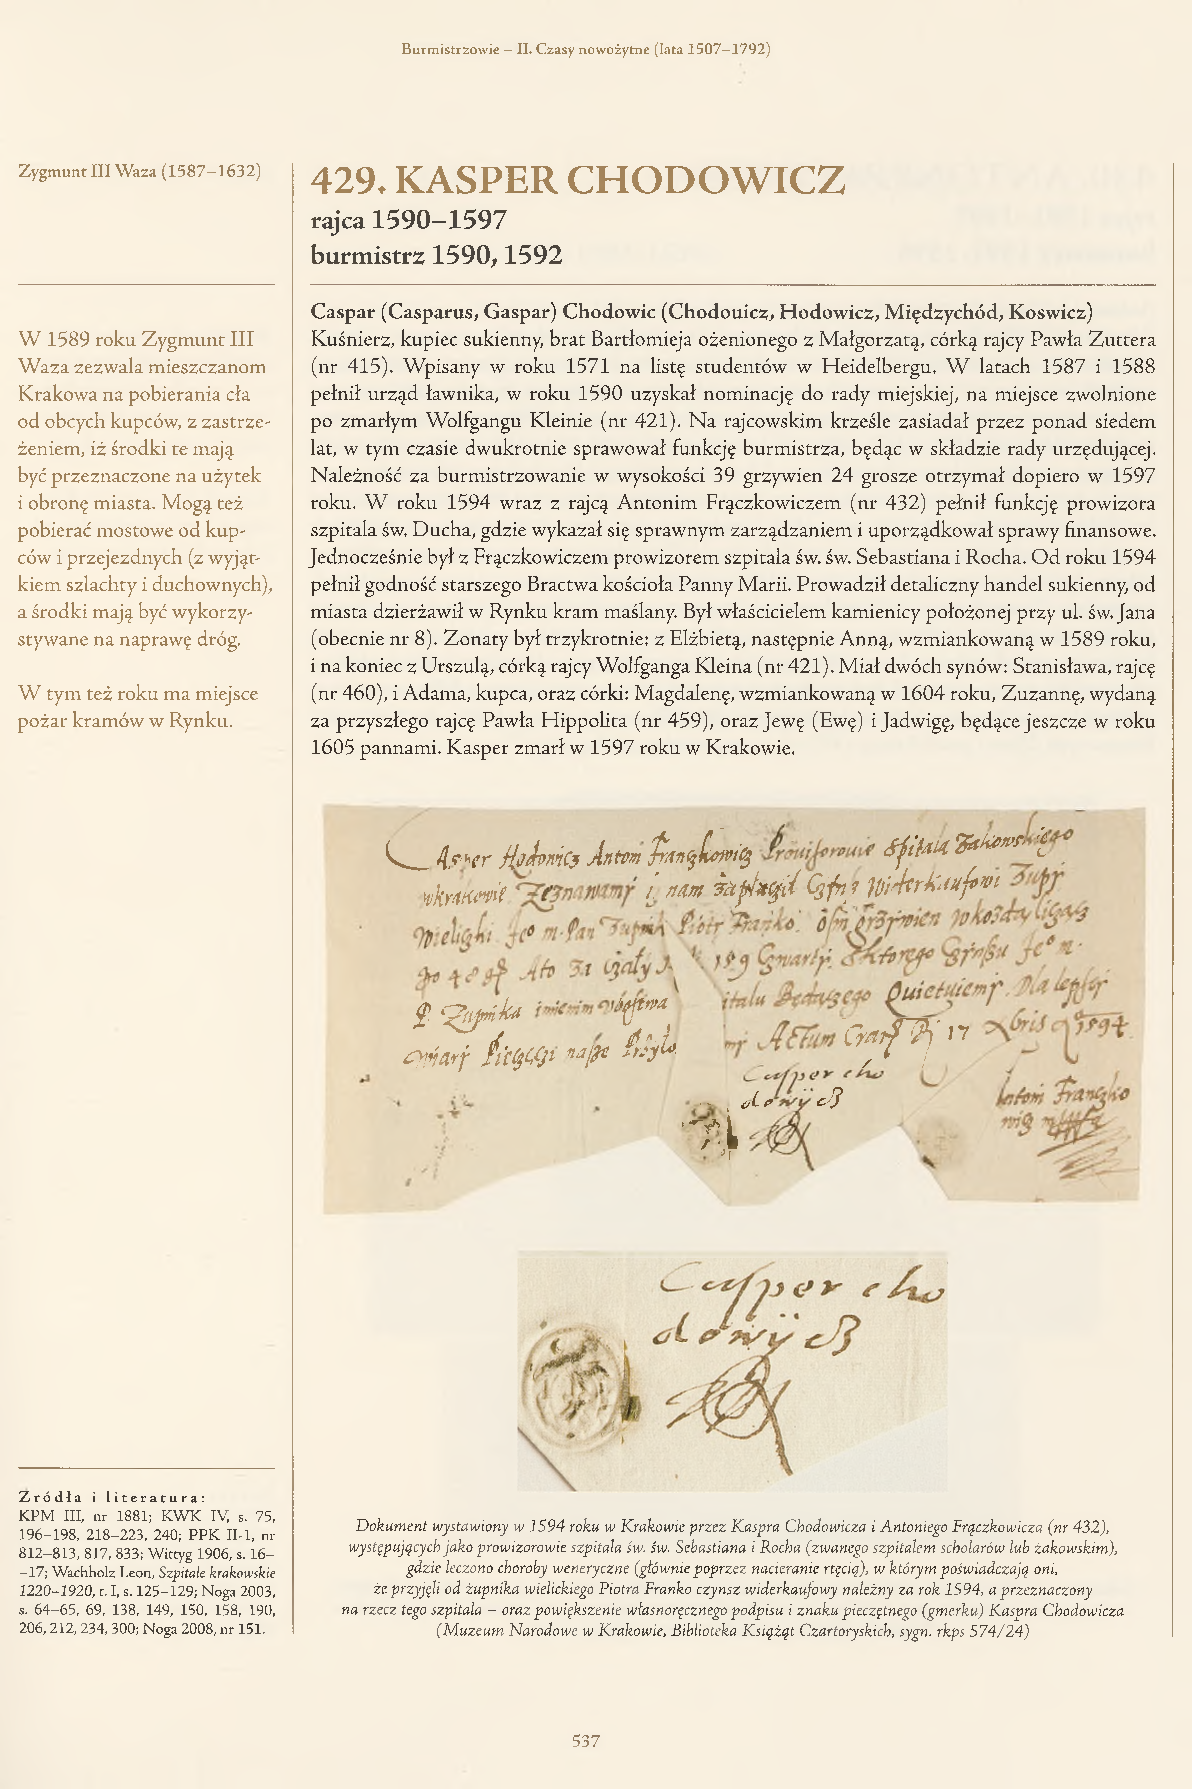 Burmistrzowie – II. Czasy nowożytne (lata 1507–1792)
Zygmunt III Waza (1587–1632)
429. KASPER CHODOWICZ
rajca 1590–1597
burmistrz 1590, 1592
W 1589 roku Zygmunt III
Waza zezwala mieszczanom
Krakowa na pobierania cła
od obcych kupców, z zastrze-
żeniem, iż środki te mają
być przeznaczone na użytek
i obronę miasta. Mogą też
pobierać mostowe od kup-
ców i przejezdnych (z wyjąt-
kiem szlachty i duchownych),
a środki mają być wykorzy-
stywane na naprawę dróg.
W tym też roku ma miejsce
pożar kramów w Rynku.
Caspar (Casparus, Gaspar) Chodowic (Chodouicz, Hodowicz, Międzychód, Koswicz)
Kuśnierz, kupiec sukienny, brat Bartłomieja ożenionego z Małgorzatą, córką rajcy Pawła Zuttera
(nr 415). Wpisany w roku 1571 na listę studentów w Heidelbergu. W latach 1587 i 1588
pełnił urząd ławnika, w roku 1590 uzyskał nominację do rady miejskiej, na miejsce zwolnione
po zmarłym Wolfgangu Kleinie (nr 421). Na rajcowskim krześle zasiadał przez ponad siedem
lat, w tym czasie dwukrotnie sprawował funkcję burmistrza, będąc w składzie rady urzędującej.
Należność za burmistrzowanie w wysokości 39 grzywien 24 grosze otrzymał dopiero w 1597
roku. W roku 1594 wraz z rajcą Antonim Frączkowiczem (nr 432) pełnił funkcję prowizora
szpitala św. Ducha, gdzie wykazał się sprawnym zarządzaniem i uporządkował sprawy finansowe.
Jednocześnie był z Frączkowiczem prowizorem szpitala św. św. Sebastiana i Rocha. Od roku 1594
pełnił godność starszego Bractwa kościoła Panny Marii. Prowadził detaliczny handel sukienny, od
miasta dzierżawił w Rynku kram maślany. Był właścicielem kamienicy położonej przy ul. św. Jana
(obecnie nr 8). Zonaty był trzykrotnie: z Elżbietą, następnie Anną, wzmiankowaną w 1589 roku,
i na koniec z Urszulą, córką rajcy Wolfganga Kleina (nr 421). Miał dwóch synów: Stanisława, rajcę
(nr 460), i Adama, kupca, oraz córki: Magdalenę, wzmiankowaną w 1604 roku, Zuzannę, wydaną
za przyszłego rajcę Pawła Hippolita (nr 459), oraz Jewę (Ewę) i Jadwigę, będące jeszcze w roku
1605 pannami. Kasper zmarł w 1597 roku w Krakowie.
Casper Hodowicz Antoni Franczkowicz Prouisorowie Spitala Zakowskiego
wkrakowie Zeznawamy iz nam zaplaczil Czfns Widerkaufowi Zupy
Wieliczki Piotr Franko
Actum 17 1594
Casper cho
dowycz
Antoni Franczko
wicz
Casper cho
dowycz
Zródła i literatura:
KPM III, nr 1881; KWK IV, s. 75,
196–198, 218–223, 240; PPK II-1, nr
812–813, 817, 833; Wittyg 1906, s. 16–
–17; Wachholz Leon, Szpitale krakowskie
1220–1920, t. I, s. 125–129; Noga 2003,
s. 64–65, 69, 138, 149, 150, 158, 190,
206, 212, 234, 300; Noga 2008, nr 151.
Dokument wystawiony w 1594 roku w Krakowie przez Kaspra Chodowicza i Antoniego Frączkowicza (nr 432),
występujących jako prowizorowie szpitala św. św. Sebastiana i Rocha (zwanego szpitalem scholarów lub żakowskim),
gdzie leczono choroby weneryczne (głównie poprzez nacieranie rtęcią), w którym poświadczają oni,
że przyjęli od żupnika wielickiego Piotra Franko czynsz widerkaufowy należny za rok 1594, a przeznaczony
na rzecz tego szpitala – oraz powiększenie własnoręcznego podpisu i znaku pieczętnego (gmerku) Kaspra Chodowicza
(Muzeum Narodowe w Krakowie, Biblioteka Książąt Czartoryskich, sygn. rkps 574/24)
537